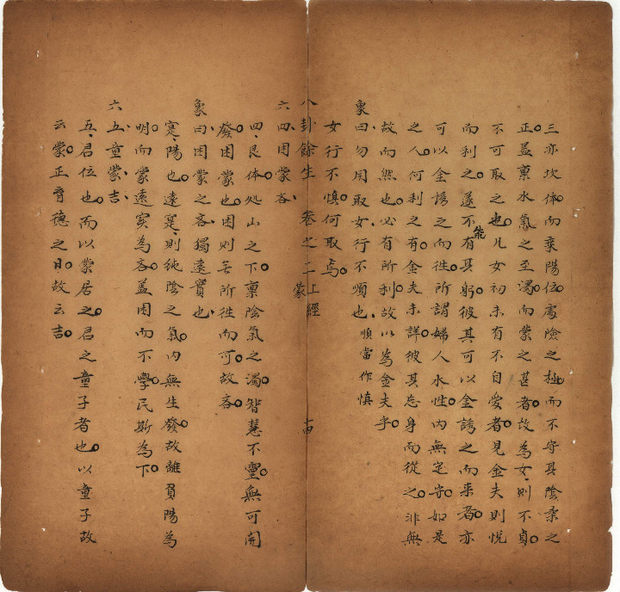 三亦坎体而乘陽位處險之極而不守其陰柔之
正蓋稟水氣之至濁而蒙之甚者故為女則不貞
不可取之也凡女初未有不自愛者見金夫則悅
而利之遂不能有其躬彼其可以金誘之而來者亦
可以金誘之而徃所謂婦人水性內無定守如是
之人何利之有金夫未詳彼其忘身而從之非無
故而然也必有所利故以為金夫乎
象曰勿用取女行不順也 順當作慎
女行不慎何取焉
八卦餘生 卷之二上經 蒙 十四
六四困蒙吝
四艮体处山之下稟陰氣之濁智慧不靈無可開
發困蒙也困則无所徃而可故吝
象曰困蒙之吝獨遠實也
寔陽也遠寔則純陰之氣內無生發故離負陽為
明而蒙遠實為吝蓋困而不學民斯為下
六五童蒙吉
五君位也而以蒙居之君之童子者也以童子故
云蒙正育德之日故云吉